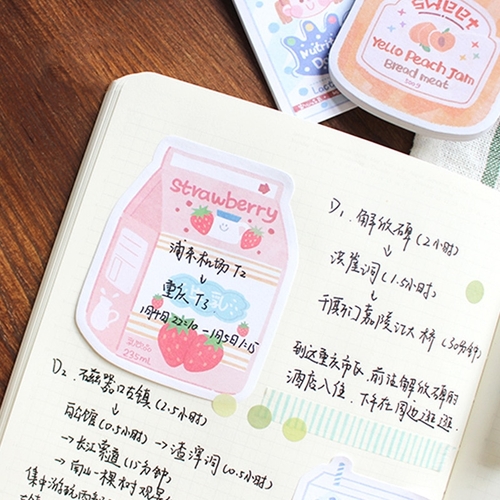 SWEET
Yello Peach Jam
Bread meat
strawberry
浦东机场 T2
↓
重庆 T3
1月4日 22:10 — 1月5日 1:15
235mL
D1. 解放碑 (2小时)
↓
洪崖洞 (1.5小时)
↓
千厮门嘉陵江大桥 (30分钟)
到达重庆市区, 前往解放碑的
酒店入住, 下午在周边逛逛.
D2. 磁器口古镇 (2.5小时)
↓
白公馆 (0.5小时) → 渣滓洞 (0.5小时)
→ 长江索道 (15分钟)
→ 南山一棵树观景
集中游玩两